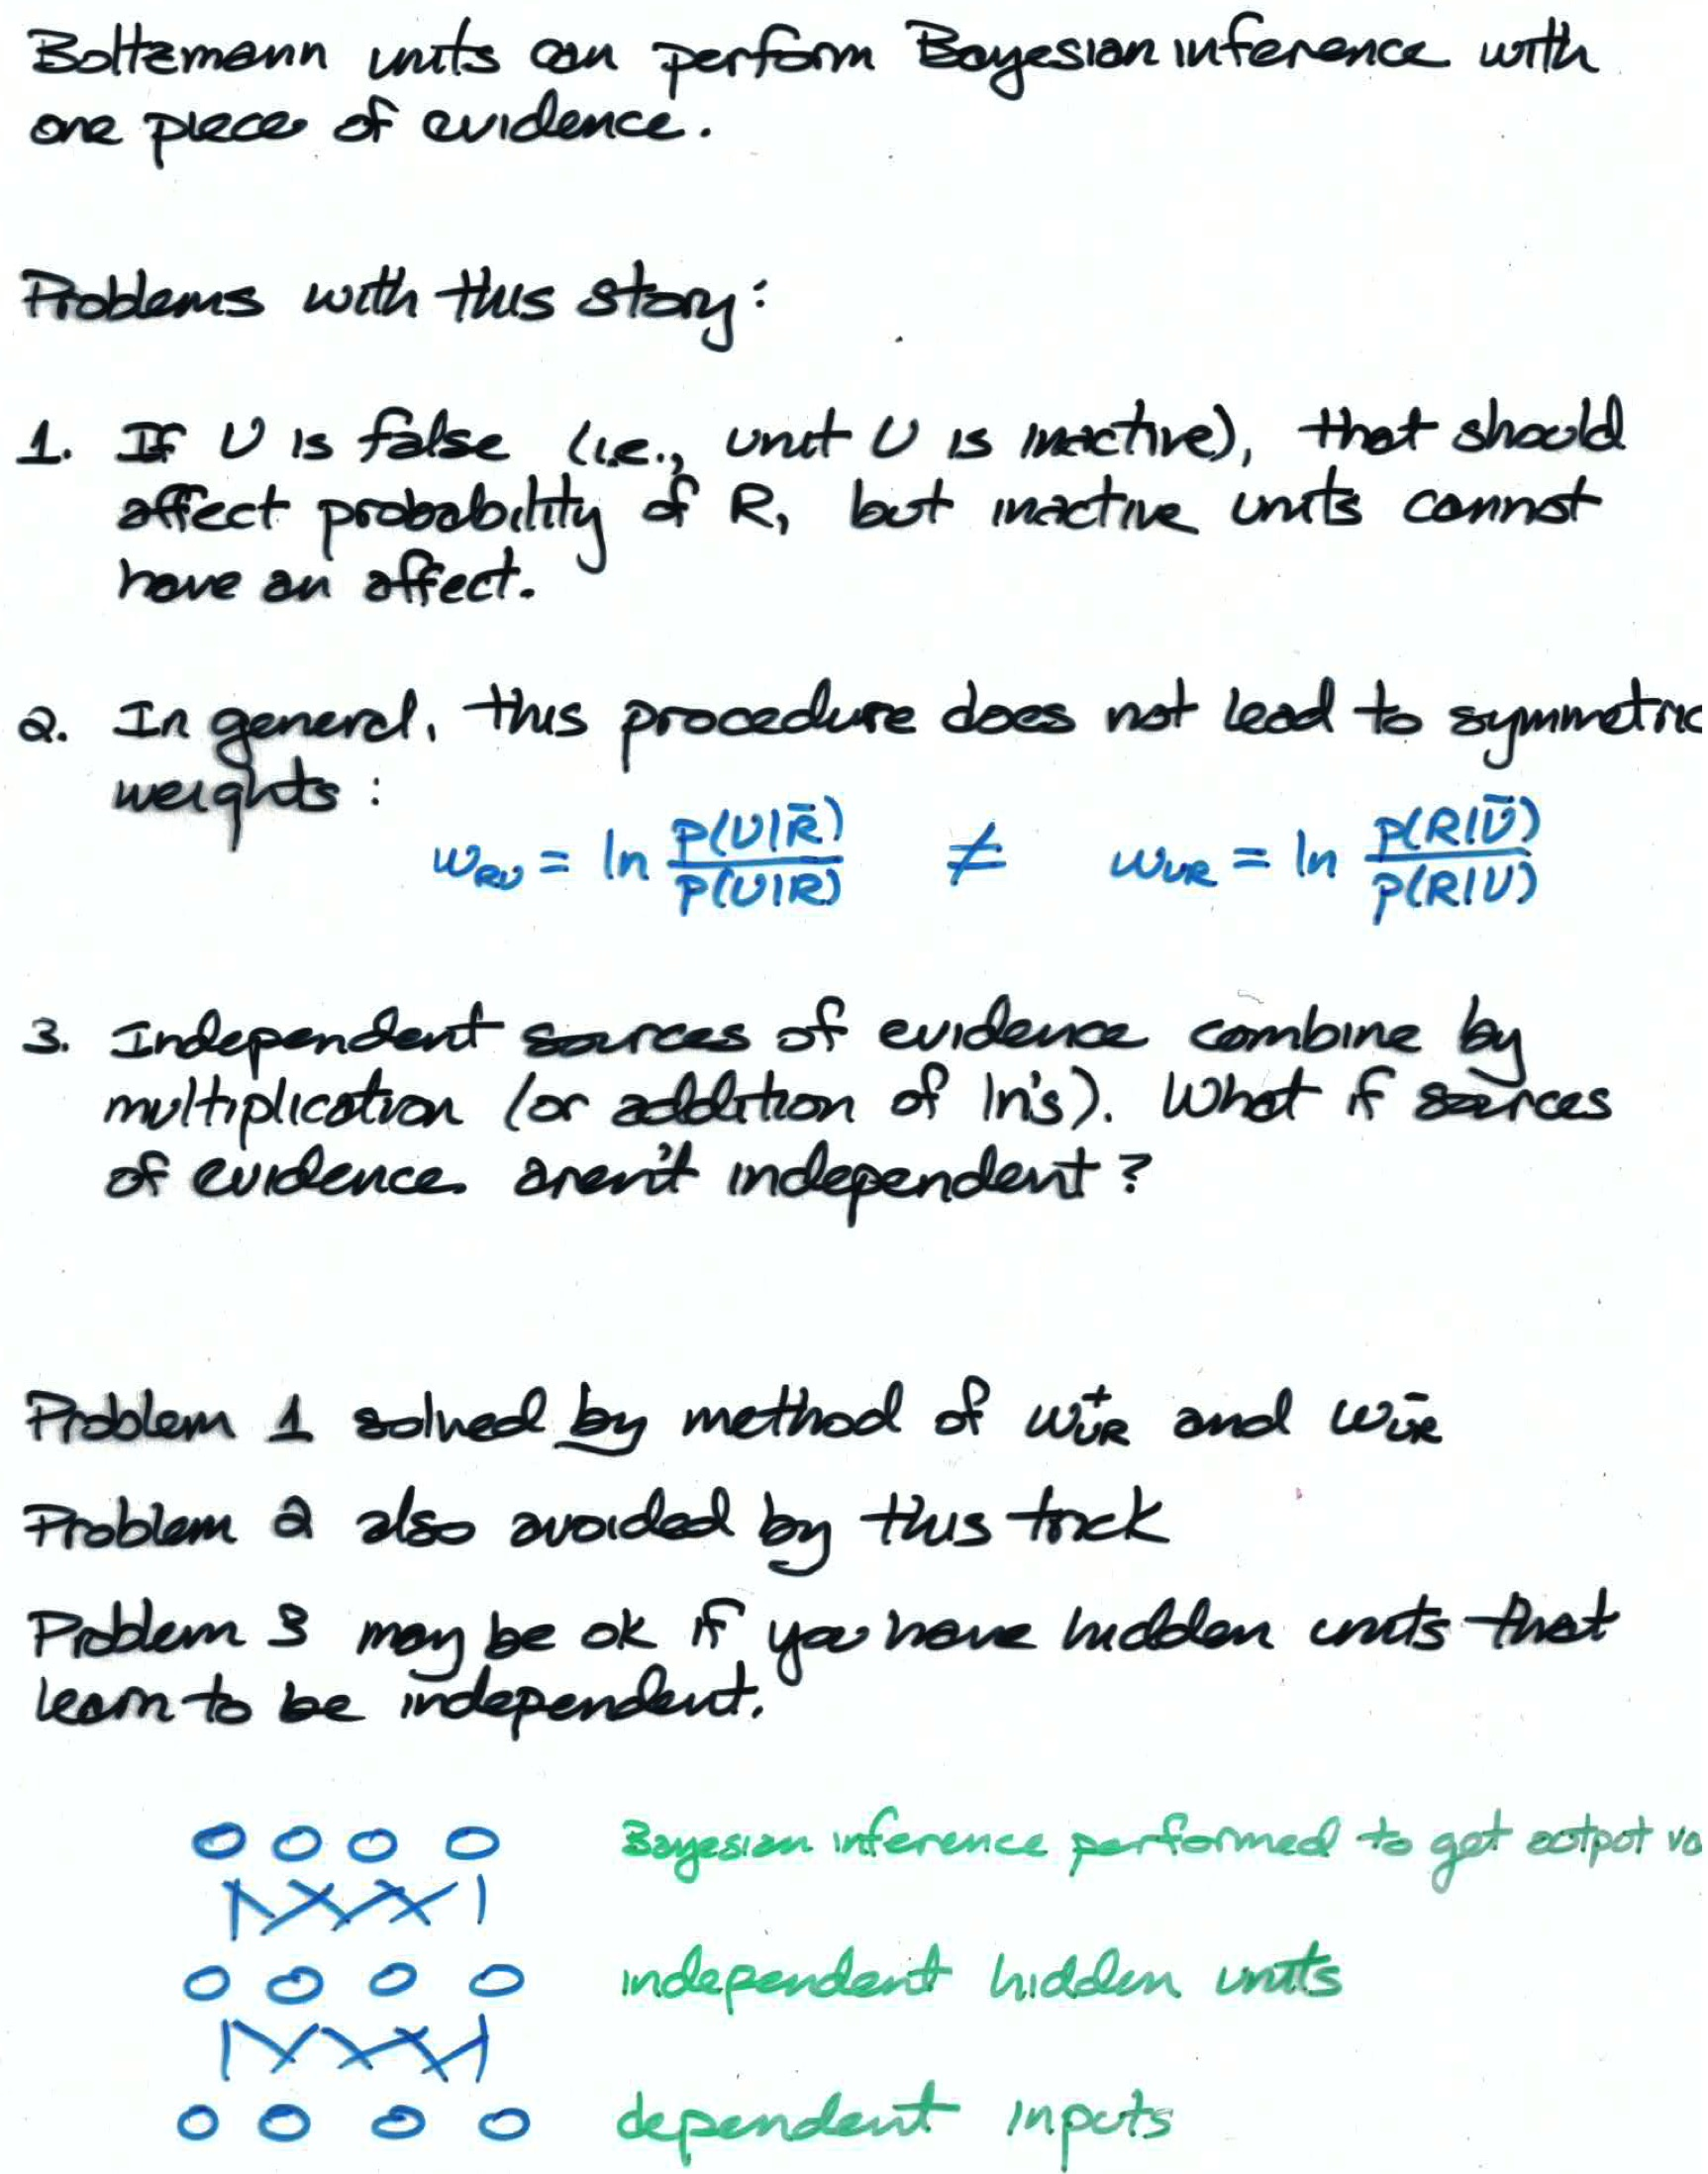 Boltzmann units can perform Bayesian inference with
one piece of evidence.
Problems with this story:
1. If U is false (i.e., unit U is inactive), that should
affect probability of R, but inactive units cannot
have an affect.
2. In general, this procedure does not lead to symmetric
weights:
w_RU = ln P(U|R̄) / P(U|R) ≠ w_UR = ln P(R|Ū) / P(R|U)
3. Independent sources of evidence combine by
multiplication (or addition of ln's). What if sources
of evidence aren't independent?
Problem 1 solved by method of w⁺_UR and w⁻_UR
Problem 2 also avoided by this trick
Problem 3 may be ok if you have hidden units that
learn to be independent.
Bayesian inference performed to get output
independent hidden units
dependent inputs